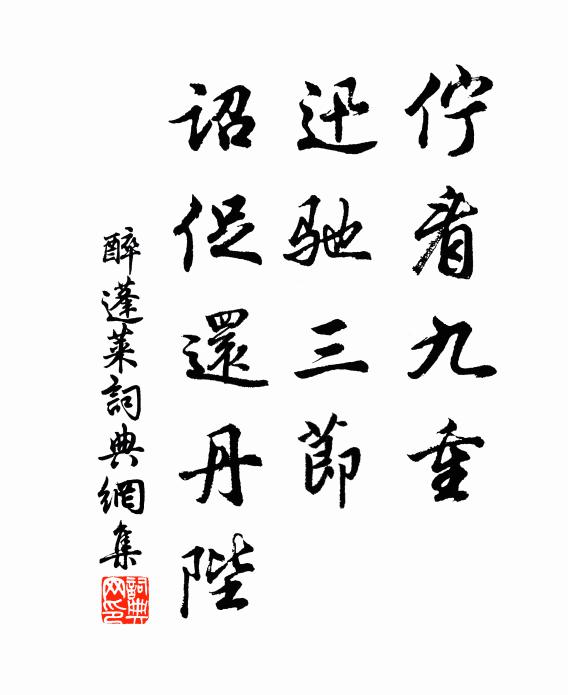 佇看九重
迅馳三節
詔促還丹陛
醉蓬萊詞典網集
詞典網印